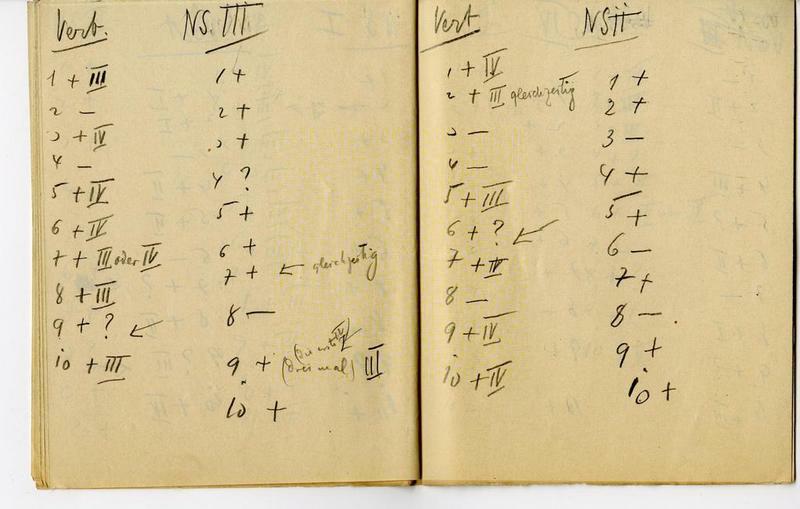 Vert. NS. III
1 + III
2 —
3 + IV
4 —
5 + IV
6 + IV
7 + III oder IV
8 + III
9 + ?
10 + III
1 +
2 +
3 +
4 ?
5 +
6 +
7 + ← gleichzeitig
8 —
9 + (drei mal) III
10 +
Vert NS II
1 + IV
2 + III gleichzeitig
3 —
4 —
5 + III
6 + ?
7 + IV
8 —
9 + IV
10 + IV
1 +
2 +
3 —
4 +
5 +
6 —
7 +
8 —
9 +
10 +